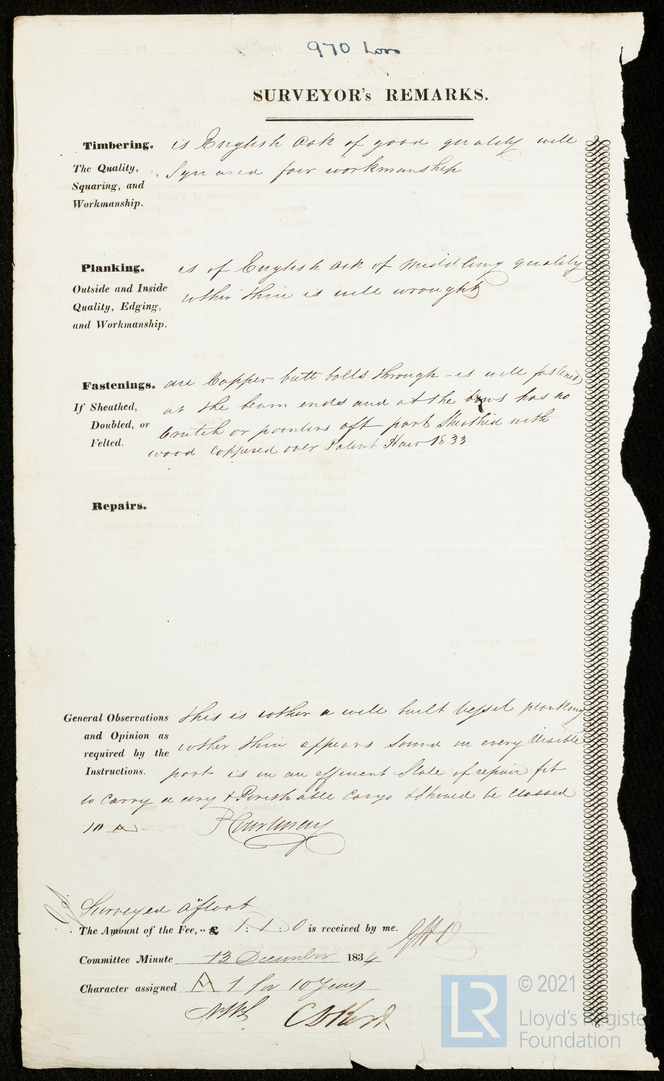 970 Lons
SURVEYOR's REMARKS.
Timbering. is English Oak of good quality well
The Quality, Squaring, and Workmanship. Squared fair workmanship
Planking. is of English Oak of middling quality
Outside and Inside Quality, Edging, and Workmanship. rother thin is well wrought
Fastenings. are Copper butt bolts through - is well fastened
If Sheathed, Doubled, or Felted. at the beam ends and at the bows has no
Crutch or pointers aft part Sheathed with
wood Coppered over Patent Hair 1833
Repairs.
General Observations and Opinion as required by the Instructions. This is rother a well built vessel planking
rother thin appears sound in every visible
part is in an efficient State of repair fit
to carry a dry & Perishable Cargo & should be Classed
10 A
P Courtenay
Surveyed afloat
The Amount of the Fee, .. £ 1 : 1 . 0 is received by me.
Committee Minute 13 December 1834
Character assigned A 1 for 10 Years
LR
© 2021
Lloyd's Register
Foundation